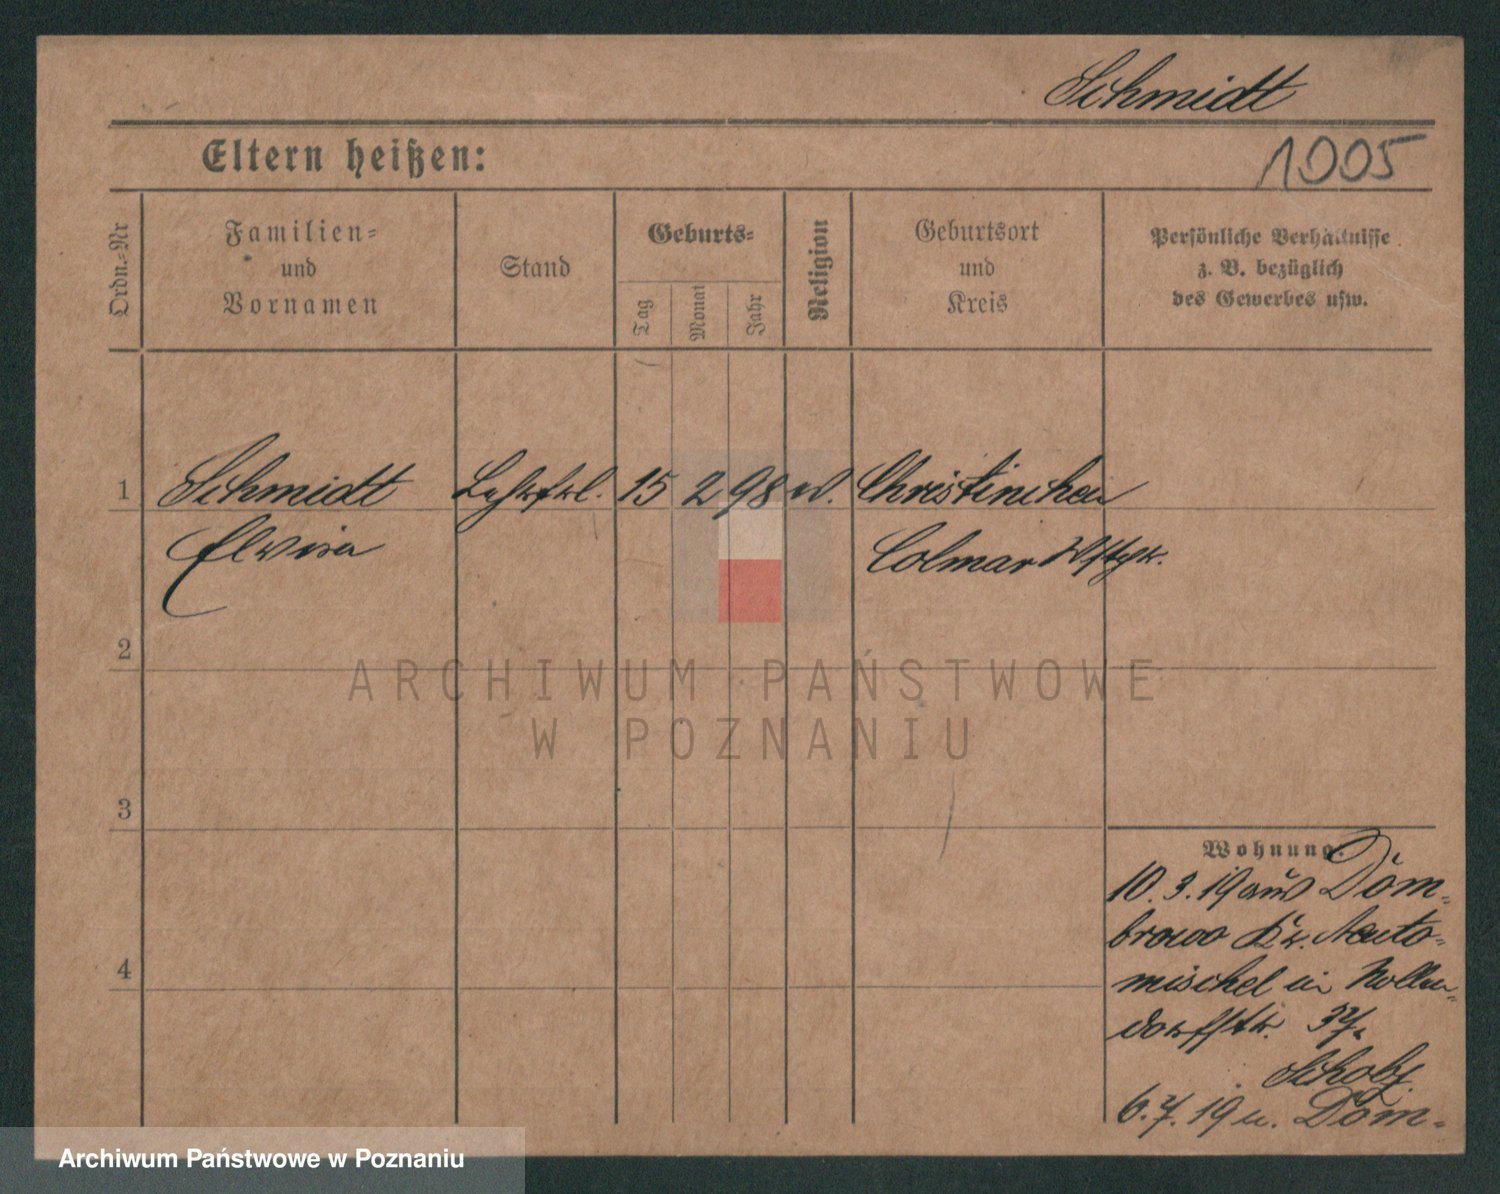 Schmidt
Eltern heißen:
1005
Ordn.-Nr
Familien-
und
Vornamen
Stand
Geburts-
Tag
Monat
Jahr
Religion
Geburtsort
und
Kreis
Persönliche Verhältnisse
z. B. bezüglich
des Gewerbes usw.
1 Schmidt Lehrfrl. 15 2 98 ev. Christinchen
Elvira Colmar
2
3
4
Wohnung.
10. 3. 19 aus Dom-
browo Kr. Neuto-
mischel in Nollen-
dorfstr. 37.
Scholz
6. 7. 19 n. Dom-
ARCHIWUM PAŃSTWOWE
W POZNANIU
Archiwum Państwowe w Poznaniu